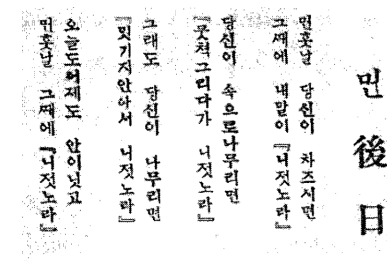 먼後日
먼훗날 당신이 차즈시면
그ᄯᅢ에 내말이 『니젓노라』
당신이 속으로나무리면
『뭇쳑그리다가 니젓노라』
그래도 당신이 나무리면
『밋기지안아서 니젓노라』
오늘도어제도 안이닛고
먼훗날 그ᄯᅢ에 『니젓노라』